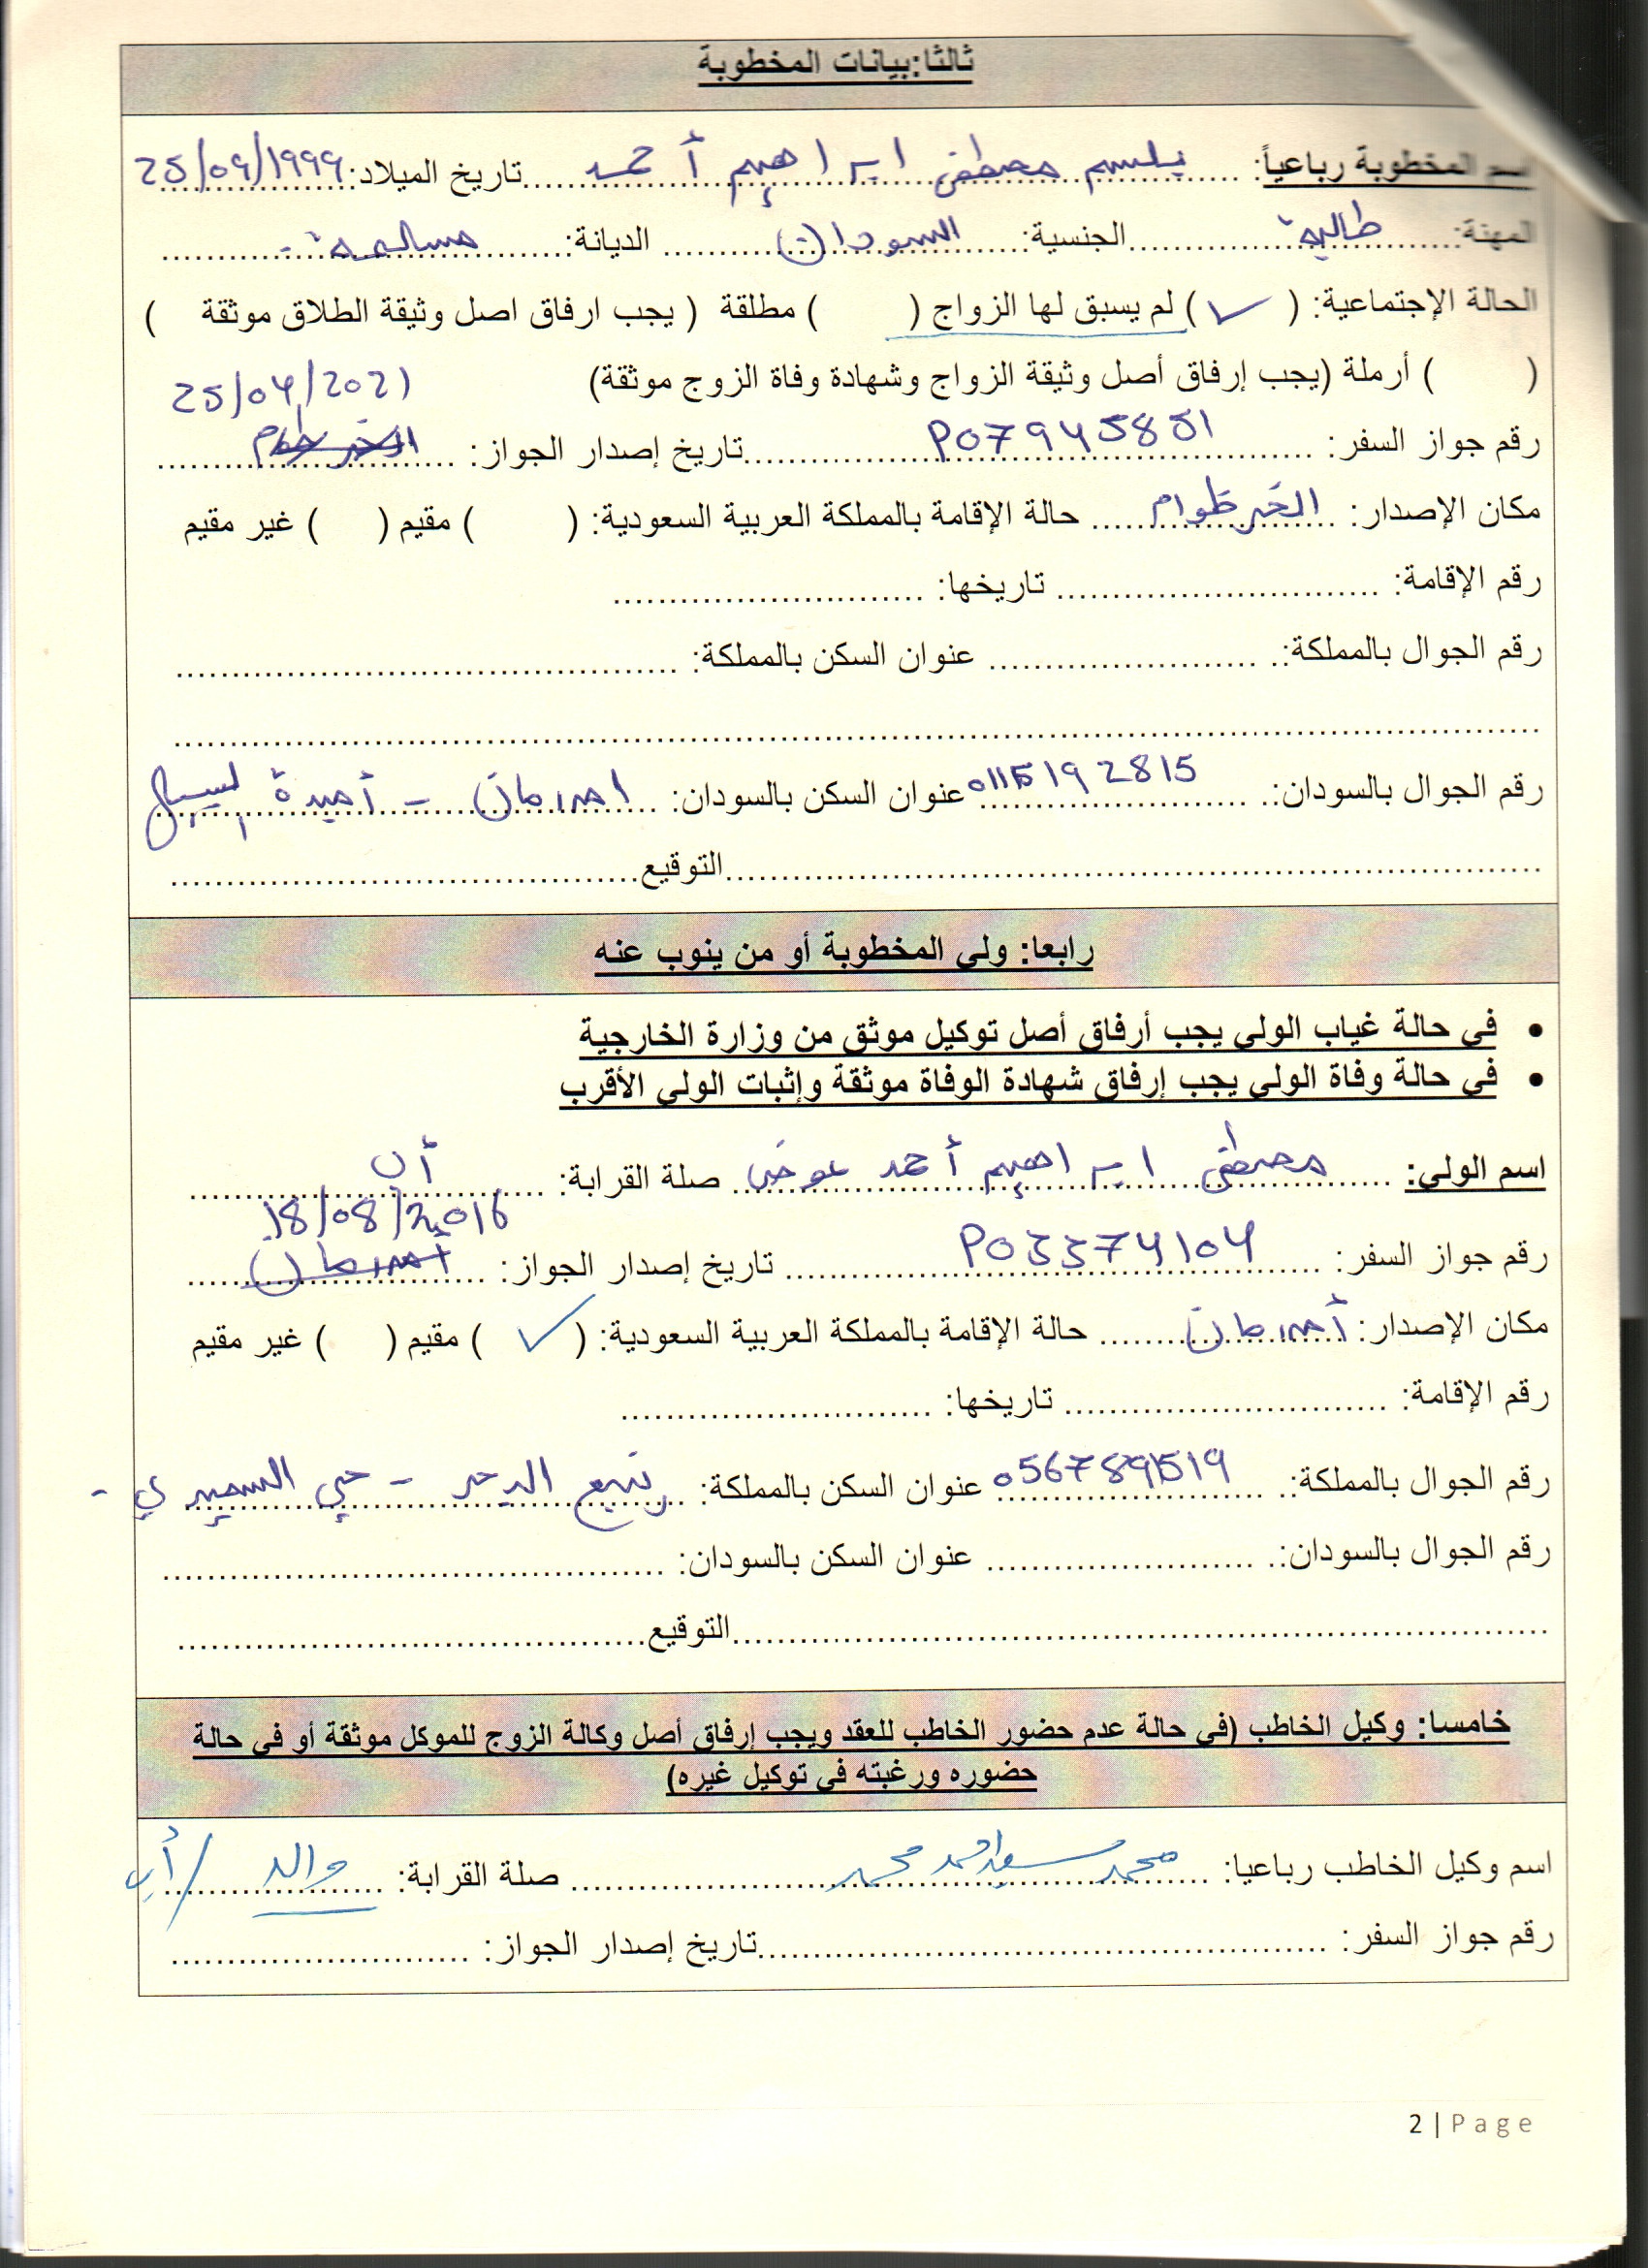 ثالثا:بيانات المخطوبة
اسم المخطوبة رباعياً: بلسم مصطفى ابراهيم أحمد تاريخ الميلاد: 25/09/1999
المهنة: طالبة الجنسية: السودان الديانة: مسلمة
الحالة الإجتماعية: ( ✓ ) لم يسبق لها الزواج ( ) مطلقة ( يجب ارفاق اصل وثيقة الطلاق موثقة )
( ) أرملة (يجب إرفاق أصل وثيقة الزواج وشهادة وفاة الزوج موثقة) 25/04/2021
رقم جواز السفر: P07945851 تاريخ إصدار الجواز:
مكان الإصدار: الخرطوام حالة الإقامة بالمملكة العربية السعودية: ( ) مقيم ( ) غير مقيم
رقم الإقامة: تاريخها:
رقم الجوال بالمملكة: عنوان السكن بالمملكة:
رقم الجوال بالسودان: عنوان السكن بالسودان: امدرمان -
التوقيع
رابعا: ولي المخطوبة أو من ينوب عنه
• في حالة غياب الولي يجب أرفاق أصل توكيل موثق من وزارة الخارجية
• في حالة وفاة الولي يجب إرفاق شهادة الوفاة موثقة وإثبات الولي الأقرب
اسم الولي: مصطفى ابراهيم أحمد عوض صلة القرابة: أب
18/08/2016
رقم جواز السفر: P03374104 تاريخ إصدار الجواز: أمدرمان
مكان الإصدار: أمدرمان حالة الإقامة بالمملكة العربية السعودية: ( ✓ ) مقيم ( ) غير مقيم
رقم الإقامة: تاريخها:
رقم الجوال بالمملكة: عنوان السكن بالمملكة: ينبع البحر - حي السميري -
رقم الجوال بالسودان: عنوان السكن بالسودان:
التوقيع
خامسا: وكيل الخاطب (في حالة عدم حضور الخاطب للعقد ويجب إرفاق أصل وكالة الزوج للموكل موثقة أو في حالة
حضوره ورغبته في توكيل غيره)
اسم وكيل الخاطب رباعيا: محمد سعيد احمد محمد صلة القرابة: والد / أب
رقم جواز السفر: تاريخ إصدار الجواز:
2 | Page